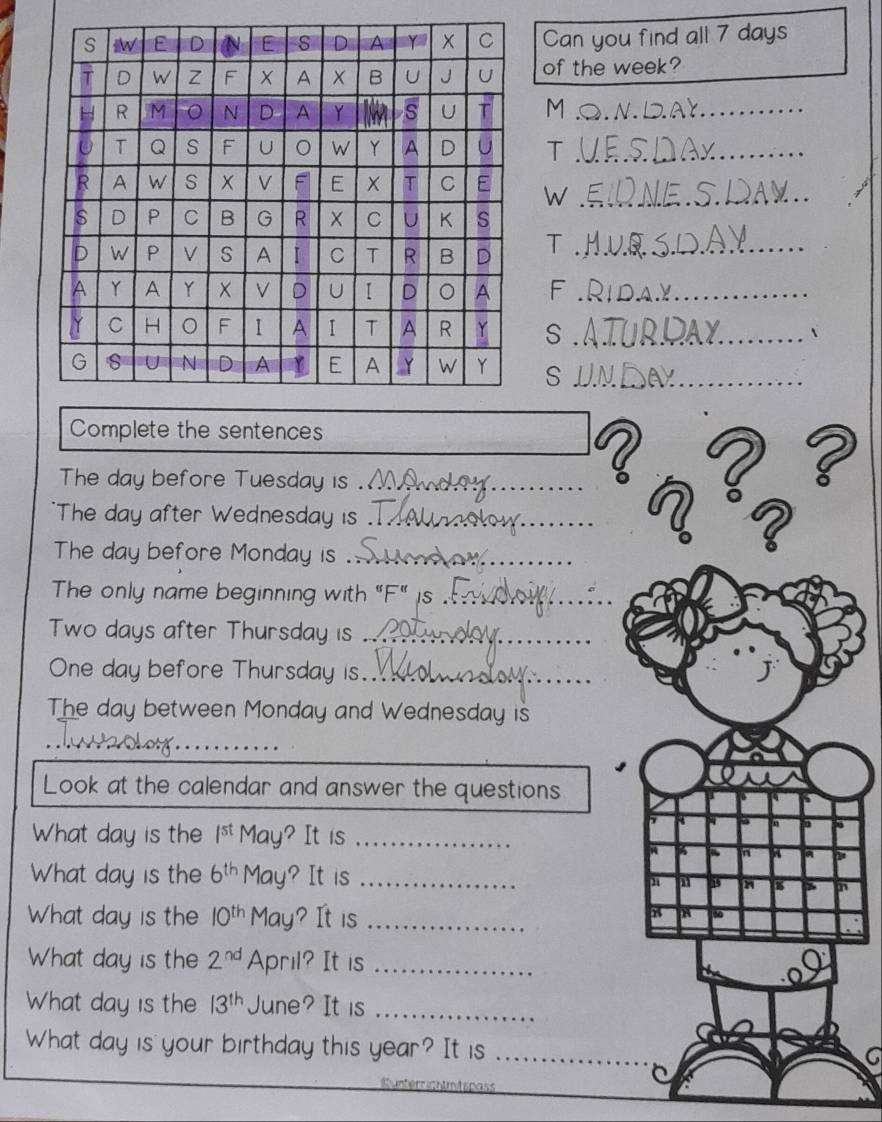 S W E D N E S D A Y X C
T D W Z F X A X B U J U
H R M O N D A Y S U T
U T Q S F U O W Y A D U
R A W S X V F E X T C E
S D P C B G R X C U K S
D W P V S A I C T R B D
A Y A Y X V D U I D O A
Y C H O F I A I T A R Y
G S U N D A Y E A Y W Y
Can you find all 7 days
of the week?
M .O.N.D.AY............
T .U.E.S.DAY............
W .E.D.N.E.S.DAY...
T .H.U.R.S.D.AY.......
F .RIDAY...............
S .ATURDAY...........
S .U.N.DAY.............
Complete the sentences
The day before Tuesday is .Monday............
The day after Wednesday is ..........
The day before Monday is ...Sunday...........
The only name beginning with "F" is .Friday.........
Two days after Thursday is ..saturday...........
One day before Thursday is..........
The day between Monday and Wednesday is
Look at the calendar and answer the questions
What day is the 1st May? It is ....................
What day is the 6th May? It is ....................
What day is the 10th May? It is ....................
What day is the 2nd April? It is ....................
What day is the 13th June? It is ....................
What day is your birthday this year? It is ....................